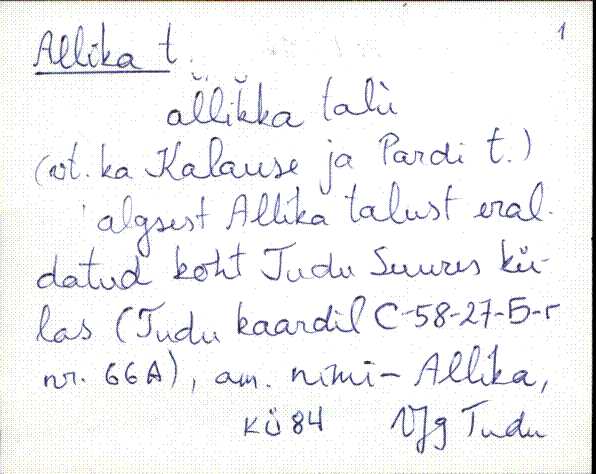 1
Allika t.
allikka talu
(vt. ka Kalause ja Pardi t.)
algsest Allika talust eral-
datud koht Tudu Suures kü-
las (Tudu kaardil C-58-27-Б-г
nr. 66A), am. nimi - Allika,
KÜ 84 VJg Tudu